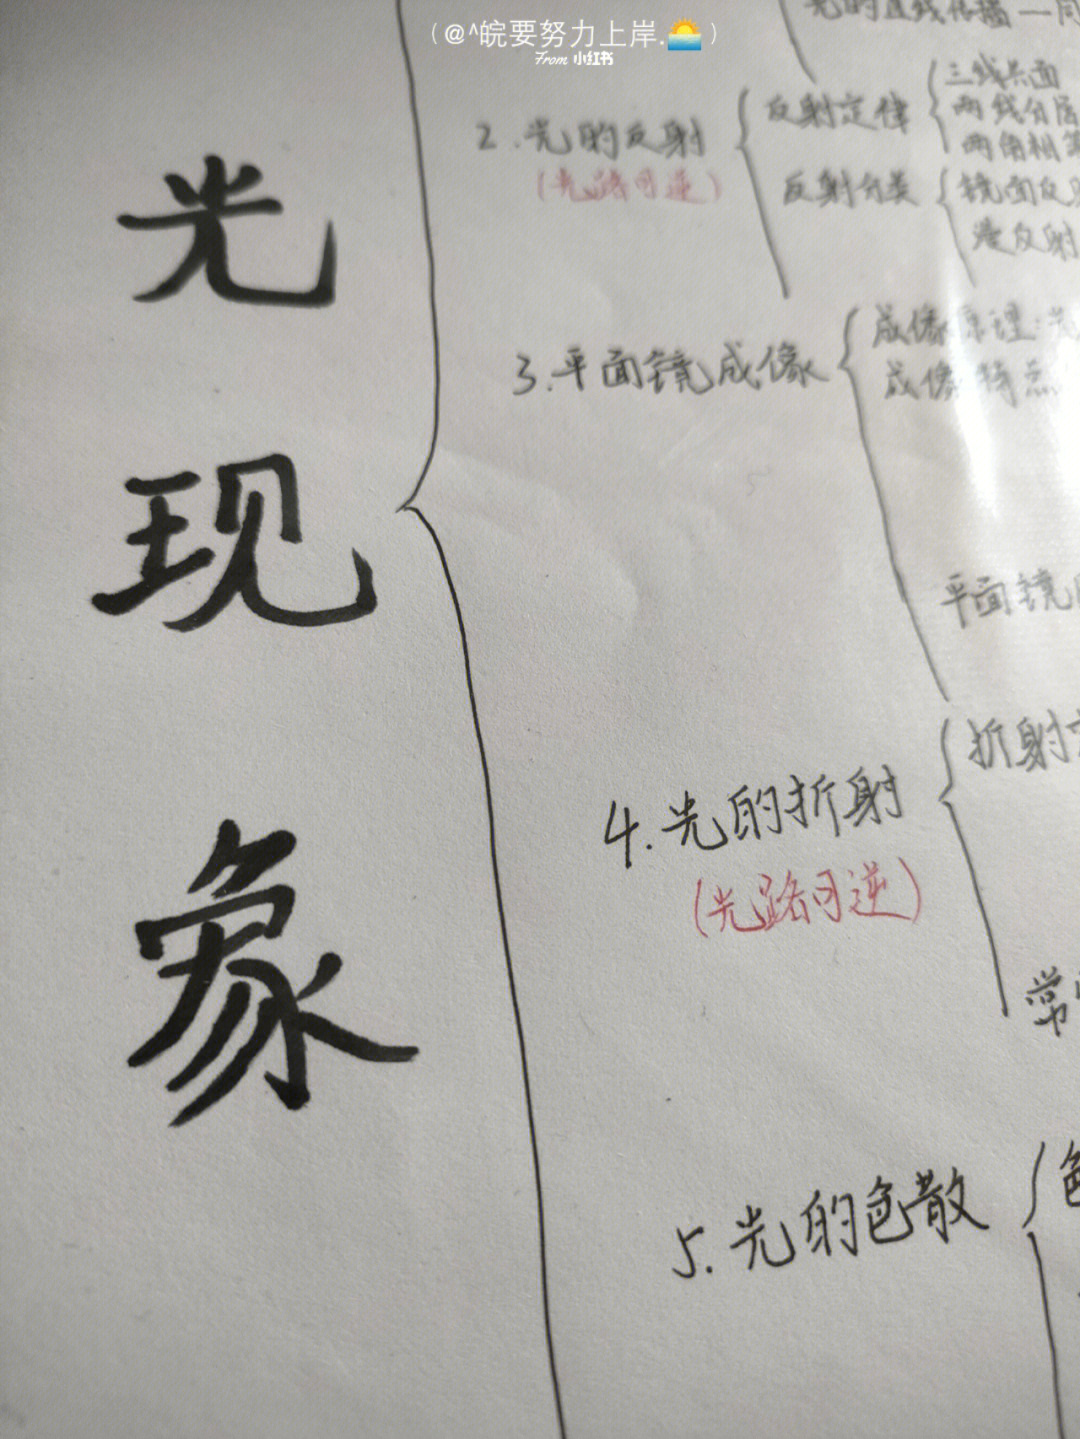 (@^皖要努力上岸.🌅)
From 小红书
光的直线传播一同
光现象
2.光的反射
(光路可逆)
反射定律
三线共面
两线分居
两角相等
反射分类
镜面反射
漫反射
3.平面镜成像
成像原理:光
成像特点
平面镜
4.光的折射
(光路可逆)
折射
常
5.光的色散
色